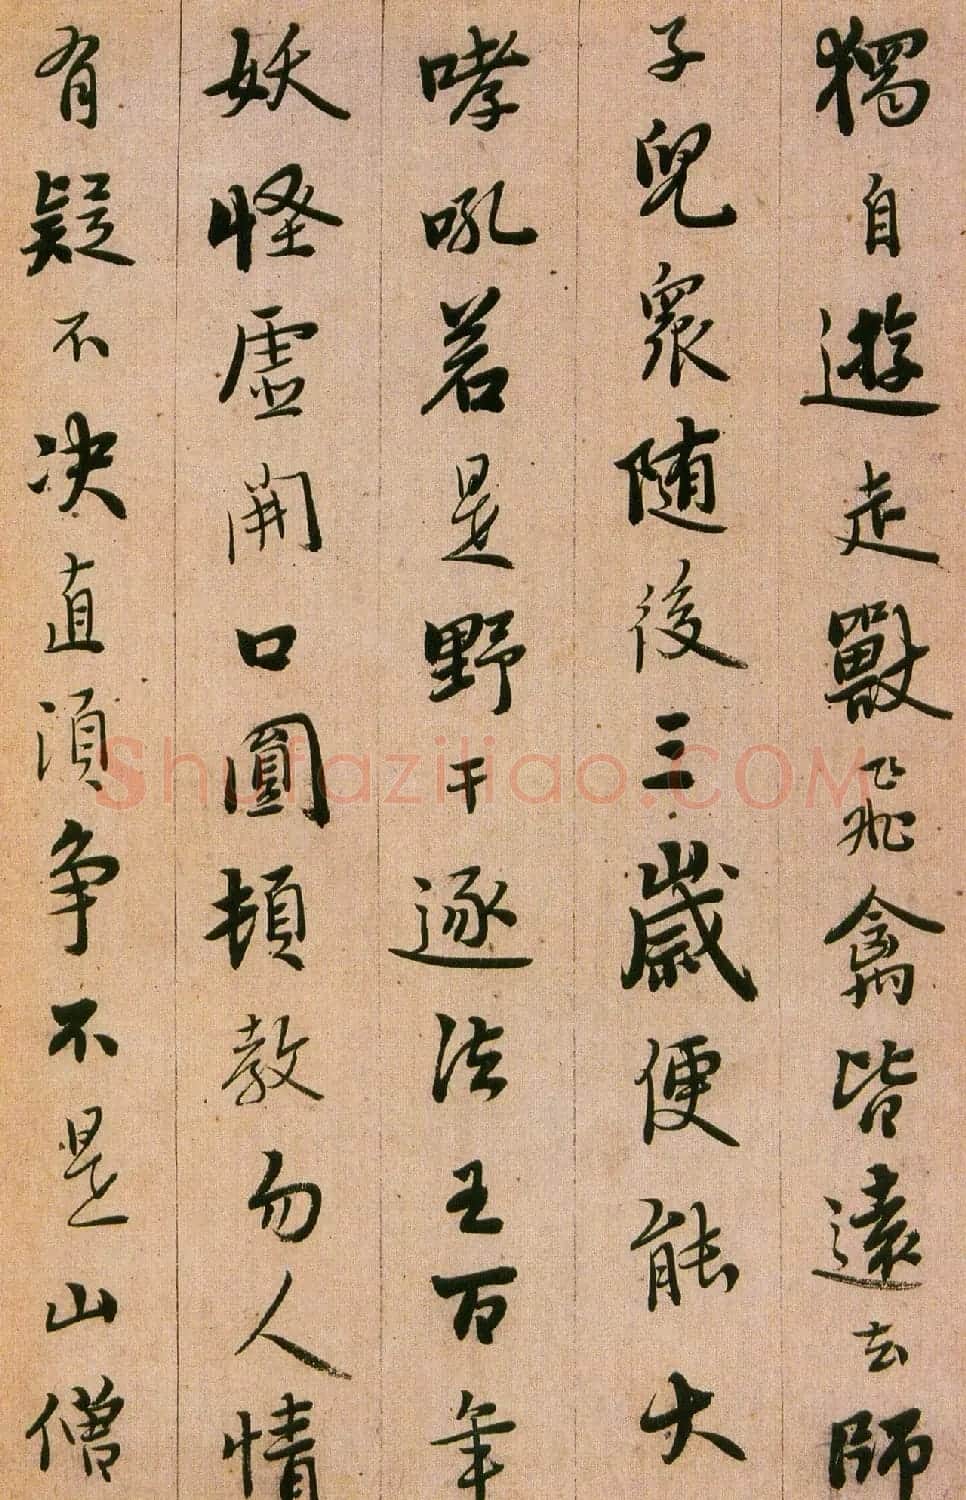 獨自遊走獸飛禽皆遠去師
子兒衆随後三歲便能大
哮吼若是野干逐法王百年
妖怪虚開口圓頓教勿人情
有疑不决直須争不是山僧
Shufaziliao.COM